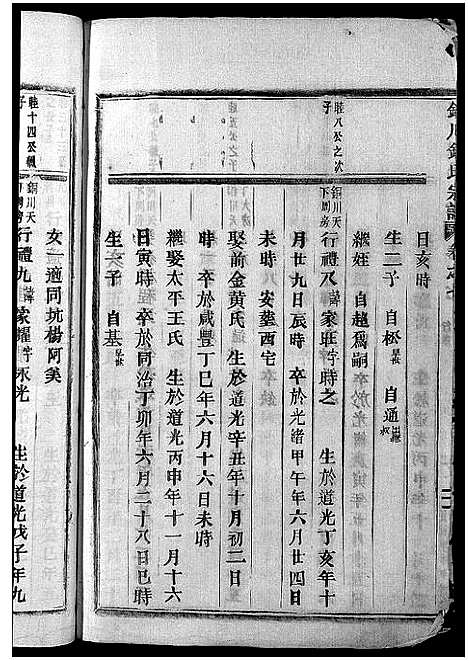 日亥時
生二子 自松 自通
繼姪 自越爲嗣
睦八公之次
子
銅川天
下圳房
行禮八 諱家莊字時之 生於道光丁亥年十
月廿九日辰時 卒於光緒甲午年六月廿四日
未時 八安塟酉宅
娶前金黄氏 生於道光辛丑年十月初二日
時 卒於咸豐丁巳年六月十六日未時
繼娶太平王氏 生於道光丙申年十一月十六
日寅時 卒於同治丁卯年六月二十八日巳時
生一子 自基
女一 適同坑楊阿美
睦十四公
子
銅川天
行禮九 諱家耀字永光 生於道光戊子年九